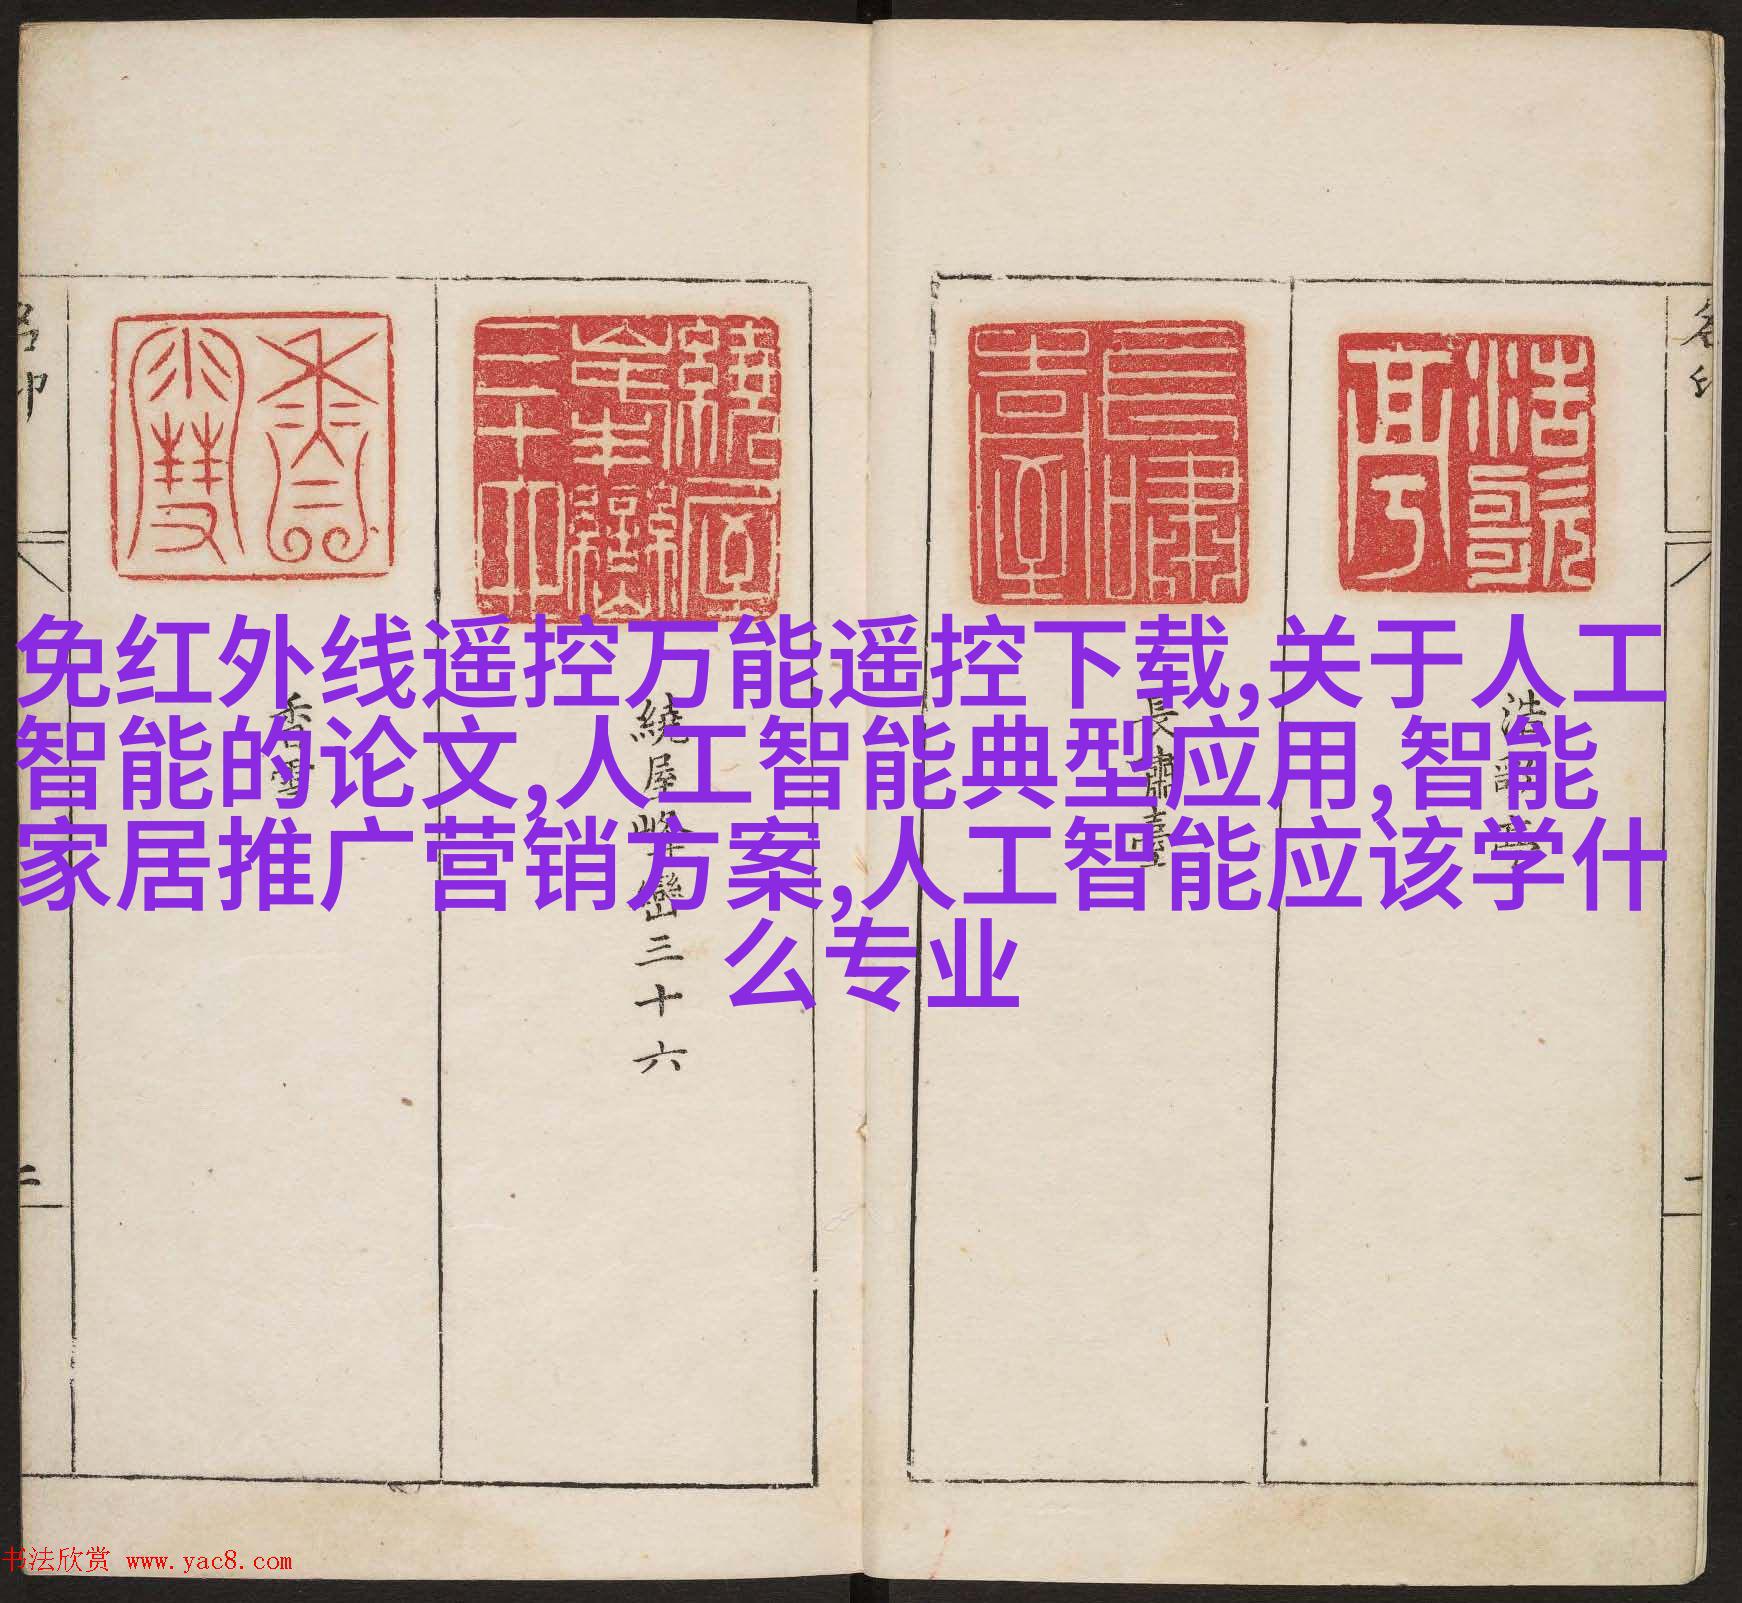 免红外线遥控万能遥控下载,关于人工
智能的论文,人工智能典型应用,智能
家居推广营销方案,人工智能应该学什
么专业
浩歌亭
長嘯臺
繞屋峰巒三十六
香雪
名印
二
一
书法欣赏 www.yac8.com